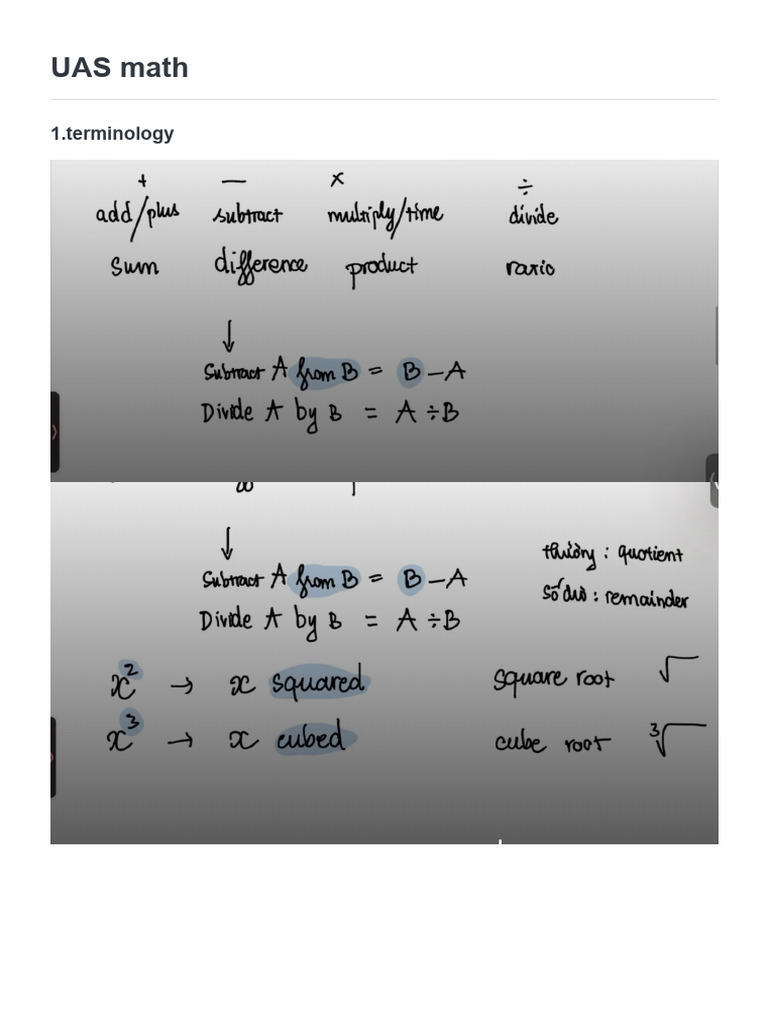 UAS math
1.terminology
+ — × ÷
add/plus subtract multiply/time divide
sum difference product ratio
↓
Subtract A from B = B – A
Divide A by B = A ÷ B
↓
Subtract A from B = B – A
thương : quotient
Divide A by B = A ÷ B
số dư : remainder
x² → x squared
square root √
x³ → x cubed
cube root ³√